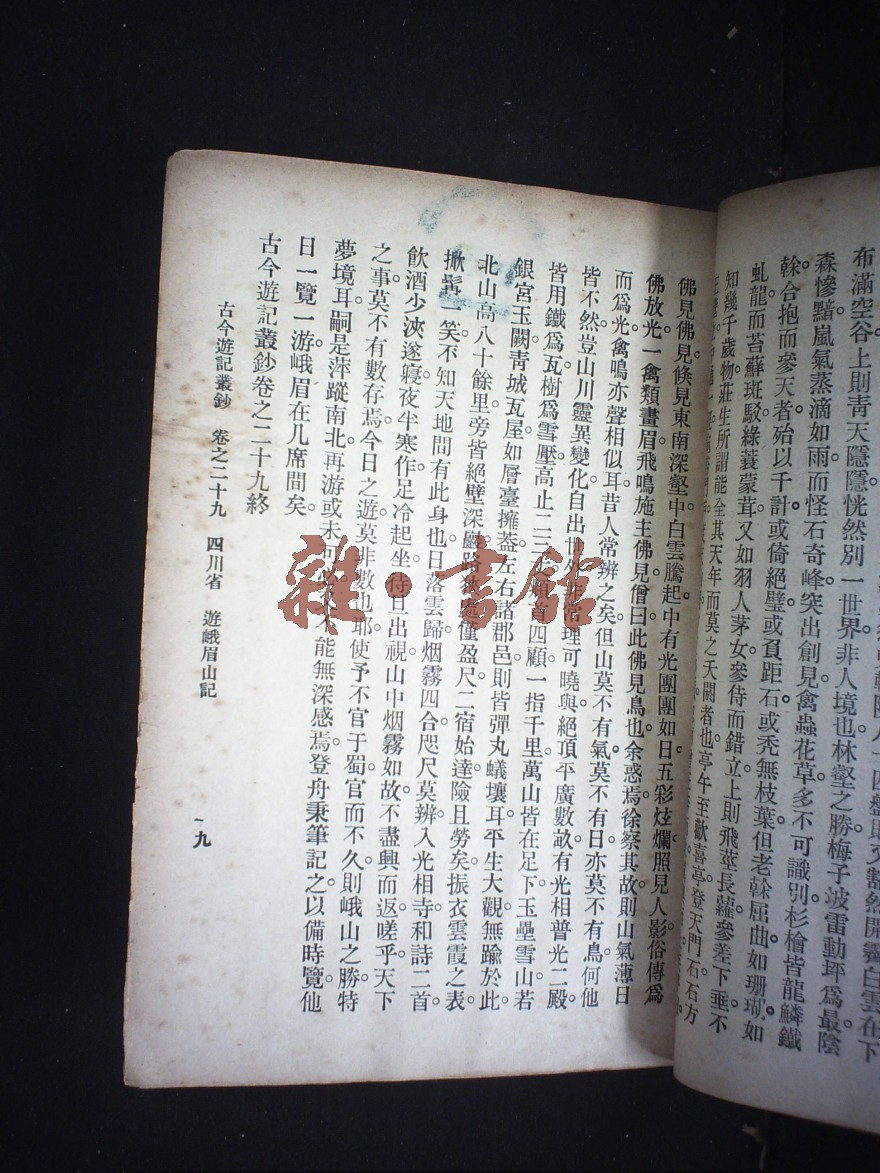 布滿空谷上則靑天隱隱恍然別一世界非人境也林壑之勝梅子波雷動坪爲最陰
森慘黯嵐氣蒸滴如雨而怪石奇峰突出創見禽蟲花草多不可識別杉檜皆龍鱗鐵
榦合抱而參天者殆以千計或倚絕壁或負距石或禿無枝葉但老榦屈曲如珊瑚如
虬龍而苔蘚斑駁綠蓑蒙茸又如羽人茅女參侍而錯立上則飛莖長蘿參差下垂不
知幾千歲物莊生所謂能全其天年而莫之夭閼者也亭午至歡喜亭登天門石石方
佛見佛見倐見東南深壑中白雲騰起中有光團團如日五彩炫爛照見人影俗傳爲
佛放光一禽類畫眉飛鳴施主佛見僧曰此佛見鳥也余惑焉徐察其故則山氣薄日
而爲光禽鳴亦聲相似耳昔人常辨之矣但山莫不有氣莫不有日亦莫不有鳥何他
皆不然豈山川靈異變化自出世外非常理可曉與絕頂平廣數畝有光相普光二殿
皆用鐵爲瓦樹爲雪壓高止二三尺頫首四顧一指千里萬山皆在足下玉壘雪山若
銀宮玉闕靑城瓦屋如層臺擁葢左右諸郡邑則皆彈丸蟻壤耳平生大觀無踰於此
北山高八十餘里旁皆絕壁深巇路狹處僅盈尺二宿始達險且勞矣振衣雲霞之表
掀髯一笑不知天地間有此身也日落雲歸烟霧四合咫尺莫辨入光相寺和詩二首
飮酒少浹遂寢夜半寒作足冷起坐待旦出視山中烟霧如故不盡興而返嗟乎天下
之事莫不有數存焉今日之遊莫非數也耶使予不官于蜀官而不久則峨山之勝特
夢境耳嗣是萍蹤南北再游或未可 人不能無深感焉登舟秉筆記之以備時覽他
日一覽一游峨眉在几席間矣
古今遊記叢鈔卷之二十九終
古今遊記叢鈔 卷之二十九 四川省 遊峨眉山記
一九
雜·書館